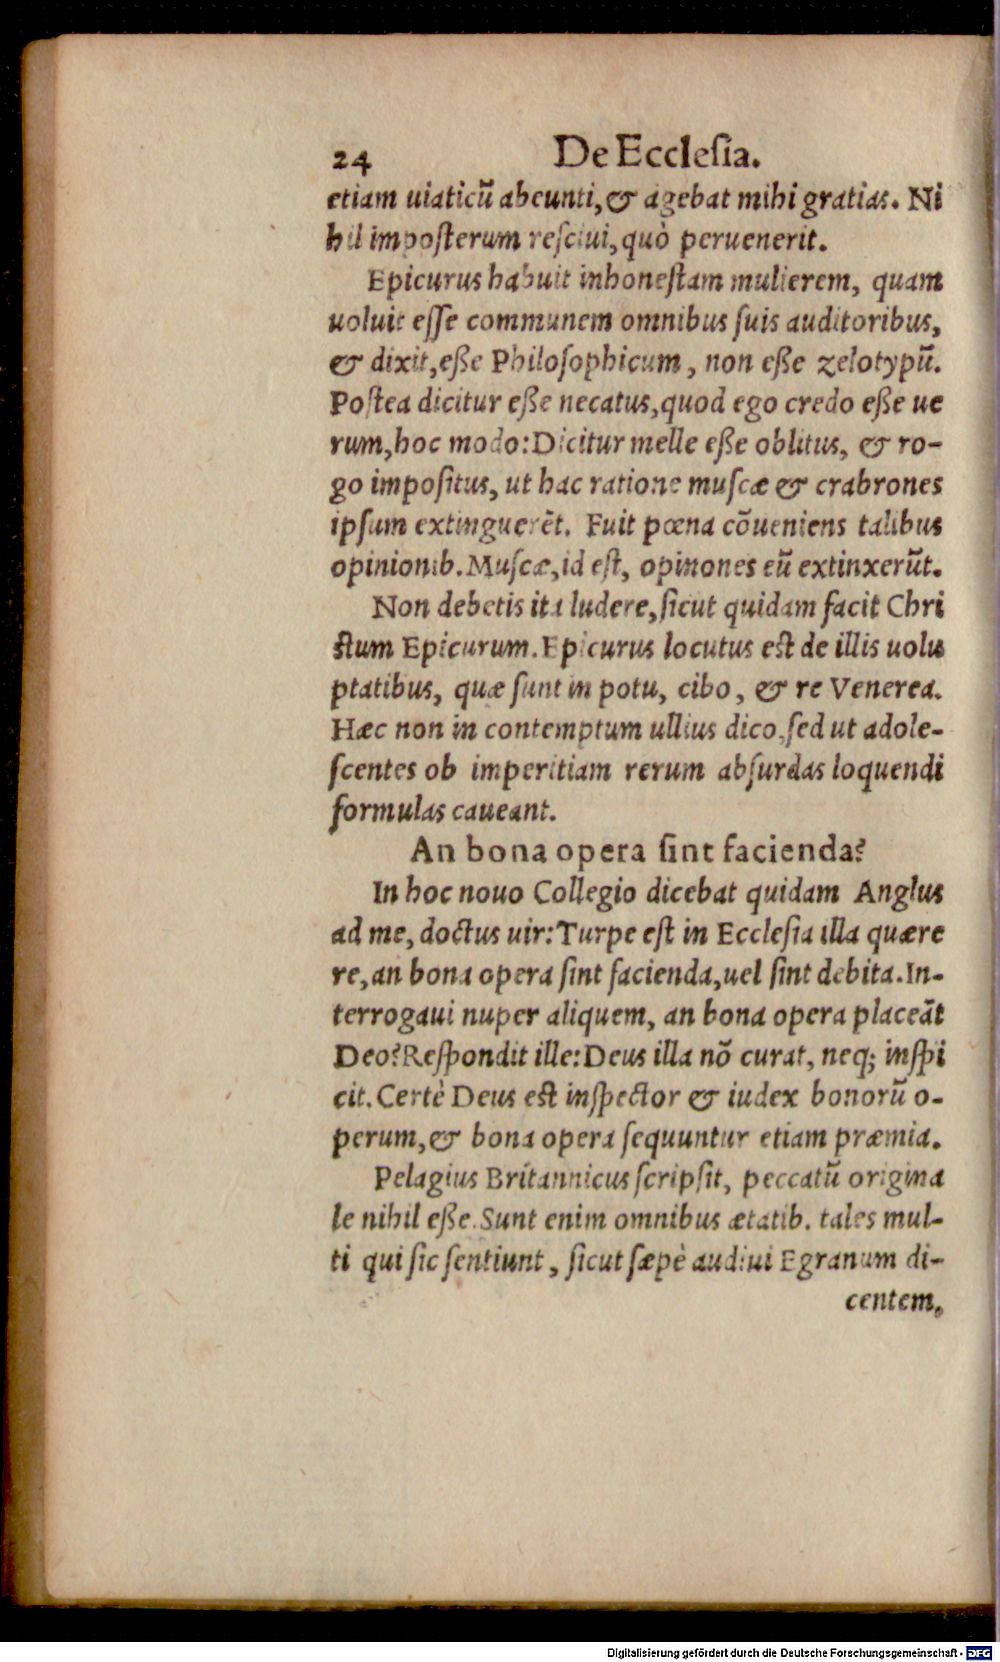 24 De Eccleſia.
etiam uiaticũ abeunti,& agebat mihi gratias. Ni
hil impoſterum reſciui,quò peruenerit.
Epicurus habuit inhoneſtam mulierem, quam
uoluit eſſe communem omnibus ſuis auditoribus,
& dixit,eße Philoſophicum, non eße zelotypũ.
Poſtea dicitur eße necatus,quod ego credo eße ue
rum,hoc modo:Dicitur melle eße oblitus, & ro-
go impoſitus, ut hac ratione muſcæ & crabrones
ipſum extinguerẽt. Fuit pœna cõueniens talibus
opinionib.Muſcæ,id eſt, opinones eũ extinxerũt.
Non debetis ita ludere,ſicut quidam facit Chri
ſtum Epicurum.Epicurus locutus eſt de illis uolu
ptatibus, quæ ſunt in potu, cibo, & re Venerea.
Hæc non in contemptum ullius dico,ſed ut adole-
ſcentes ob imperitiam rerum abſurdas loquendi
formulas caueant.
An bona opera ſint facienda?
In hoc nouo Collegio dicebat quidam Anglus
ad me, doctus uir:Turpe eſt in Eccleſia illa quære
re,an bona opera ſint facienda,uel ſint debita.In-
terrogaui nuper aliquem, an bona opera placeãt
Deo?Reſpondit ille:Deus illa nõ curat, neq; inſpi
cit.Certè Deus eſt inſpector & iudex bonorũ o-
perum,& bona opera ſequuntur etiam præmia.
Pelagius Britannicus ſcripſit, peccatũ origina
le nihil eße.Sunt enim omnibus ætatib. tales mul-
ti qui ſic ſentiunt, ſicut ſæpè audiui Egranum di-
centem,
Digitalisierung gefördert durch die Deutsche Forschungsgemeinschaft - DFG